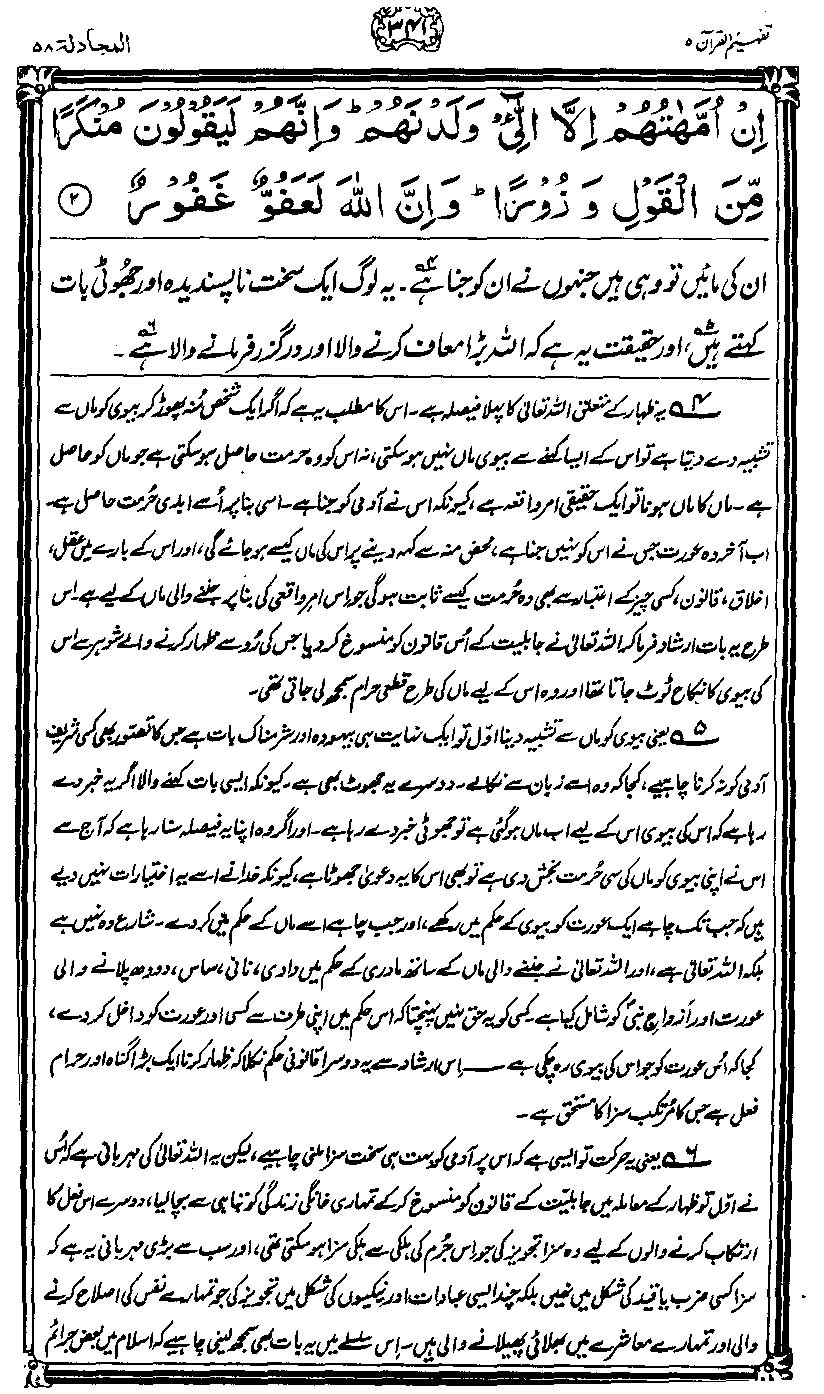 تفہیم القرآن ۵
۳۴۱
المجادلۃ ۵۸
اِنْ اُمَّهٰتُهُمْ اِلَّا الّٰٓـِٔیْ وَلَدْنَهُمْ ؕ وَاِنَّهُمْ لَیَقُوْلُوْنَ مُنْكَرًا
مِّنَ الْقَوْلِ وَ زُوْرًا ؕ وَاِنَّ اللّٰهَ لَعَفُوٌّ غَفُوْرٌ ۲
ان کی مائیں تو وہی ہیں جنہوں نے ان کو جنا ہے۴۔ یہ لوگ ایک سخت ناپسندیدہ اور جھوٹی بات
کہتے ہیں۵، اور حقیقت یہ ہے کہ اللہ بڑا معاف کرنے والا اور درگزر فرمانے والا ہے۶۔
۴ یہ ظہار کے متعلق اللہ تعالیٰ کا پہلا فیصلہ ہے۔ اس کا مطلب یہ ہے کہ اگر ایک شخص مُنہ پھوڑ کر بیوی کو ماں سے
تشبیہ دے دیتا ہے تو اس کے ایسا کہنے سے بیوی ماں نہیں ہو سکتی، نہ اس کو وہ حرمت حاصل ہو سکتی ہے جو ماں کو حاصل
ہے۔ ماں کا ماں ہونا تو ایک حقیقی امر واقعہ ہے، کیونکہ اس نے آدمی کو جنا ہے۔ اسی بنا پر اُسے ابدی حُرمت حاصل ہے۔
اب آخر وہ عورت جس نے اس کو نہیں جنا ہے، محض منہ سے کہہ دینے پر اس کی ماں کیسے ہو جائے گی، اور اس کے بارے میں عقل،
اخلاق، قانون، کسی چیز کے اعتبار سے بھی وہ حُرمت کیسے ثابت ہوگی جو اس امر واقعی کی بنا پر جننے والی ماں کے لیے ہے۔ اس
طرح یہ بات ارشاد فرما کر اللہ تعالیٰ نے جاہلیت کے اُس قانون کو منسوخ کر دیا جس کی رُو سے ظہار کرنے والے شوہر سے اس
کی بیوی کا نکاح ٹوٹ جاتا تھا اور وہ اس کے لیے ماں کی طرح قطعی حرام سمجھ لی جاتی تھی۔
۵ یعنی بیوی کو ماں سے تشبیہ دینا اوّل تو ایک نہایت ہی بیہودہ اور شرمناک بات ہے جس کا تصور بھی کسی شریف
آدمی کو نہ کرنا چاہیے، کجا کہ وہ اسے زبان سے نکالے۔ دوسرے یہ جھوٹ بھی ہے۔ کیونکہ ایسی بات کہنے والا اگر یہ خبر دے
رہا ہے کہ اس کی بیوی اس کے لیے اب ماں ہو گئی ہے تو جھوٹی خبر دے رہا ہے۔ اور اگر وہ اپنا یہ فیصلہ سنا رہا ہے کہ آج سے
اس نے اپنی بیوی کو ماں کی سی حُرمت بخش دی ہے تو بھی اس کا یہ دعویٰ جھوٹا ہے، کیونکہ خدا نے اسے یہ اختیارات نہیں دیے
ہیں کہ جب تک چاہے ایک عورت کو بیوی کے حکم میں رکھے، اور جب چاہے اسے ماں کے حکم میں کر دے۔ شارع وہ نہیں ہے
بلکہ اللہ تعالیٰ ہے، اور اللہ تعالیٰ نے جننے والی ماں کے ساتھ مادری کے حکم میں دادی، نانی، ساس، دودھ پلانے والی
عورت اور ازواجِ نبیؐ کو شامل کیا ہے۔ کسی کو یہ حق نہیں پہنچتا کہ اس حکم میں اپنی طرف سے کسی اور عورت کو داخل کر دے،
کجا کہ اُس عورت کو جو اس کی بیوی رہ چکی ہے ـــــ اِس ارشاد سے یہ دوسرا قانونی حکم نکلا کہ ظہار کرنا ایک بڑا گناہ اور حرام
فعل ہے جس کا مُرتکب سزا کا مستحق ہے۔
۶ یعنی یہ حرکت تو ایسی ہے کہ اس پر آدمی کو بہت ہی سخت سزا ملنی چاہیے، لیکن یہ اللہ تعالیٰ کی مہربانی ہے کہ اُس
نے اوّل تو ظہار کے معاملہ میں جاہلیّت کے قانون کو منسوخ کر کے تمہاری خانگی زندگی کو تباہی سے بچا لیا، دوسرے اس فعل کا
ارتکاب کرنے والوں کے لیے وہ سزا تجویز کی جو اس جُرم کی ہلکی سے ہلکی سزا ہو سکتی تھی، اور سب سے بڑی مہربانی یہ ہے کہ
سزا کسی ضرب یا قید کی شکل میں نہیں بلکہ چند ایسی عبادات اور نیکیوں کی شکل میں تجویز کی جو تمہارے نفس کی اصلاح کرنے
والی اور تمہارے معاشرے میں بھلائی پھیلانے والی ہیں۔ اِس سلسلے میں یہ بات بھی سمجھ لینی چاہیے کہ اسلام میں بعض جرائم